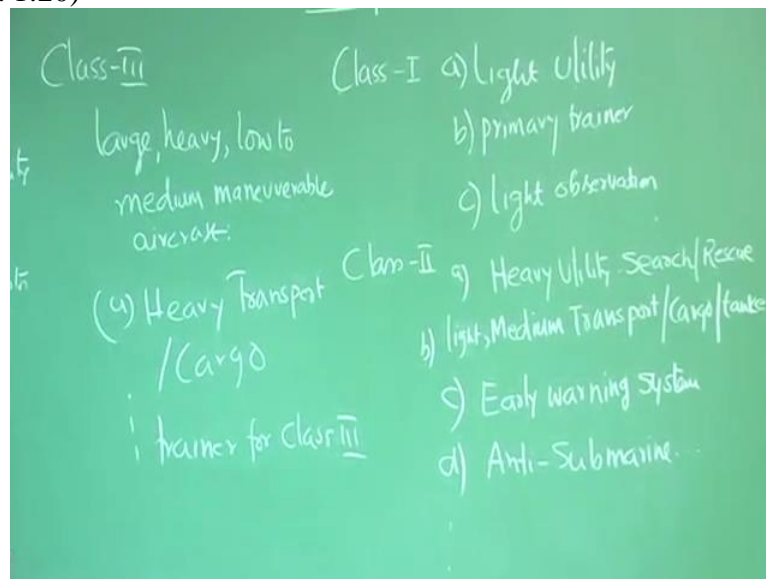 1:20)
Class-III
large, heavy, low to
medium maneuverable
aircraft.
(a) Heavy Transport
/Cargo
trainer for Class III
Class-I a) Light Utility
b) primary trainer
c) light observation
Class-II a) Heavy Utility Search/Rescue
b) light, Medium Transport/Cargo/tanke
c) Early warning System
d) Anti-Submarine...